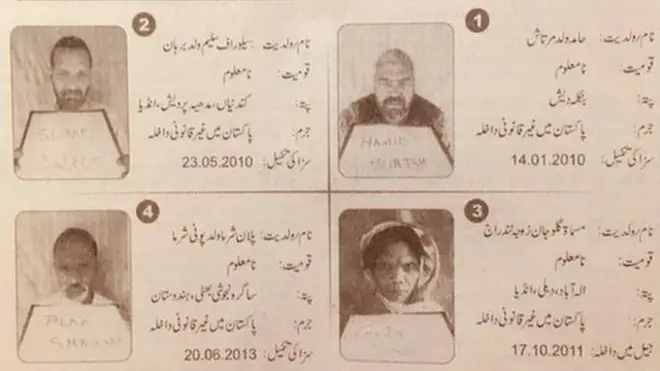 1
نام رولدیت: حامد ولد مرتاش
قومیت: نامعلوم
پتہ: بنگلہ دیش
جرم: پاکستان میں غیر قانونی داخلہ
سزا کی تکمیل: 14.01.2010
HAMID
2
نام رولدیت: سیلوراف سلیم ولد برہان
قومیت: نامعلوم
پتہ: کندنیاں، مدھیہ پردیش، انڈیا
جرم: پاکستان میں غیر قانونی داخلہ
سزا کی تکمیل: 23.05.2010
3
نام رولدیت: مسماۃ گلو جان زوجہ نندراج
قومیت: نامعلوم
پتہ: الہ آباد، دہلی، انڈیا
جرم: پاکستان میں غیر قانونی داخلہ
جیل میں داخلہ: 17.10.2011
4
نام رولدیت: پلان شرما ولد پونی شرما
قومیت: نامعلوم
پتہ: ساگرہ نجوشی بھٹی، ہندوستان
جرم: پاکستان میں غیر قانونی داخلہ
سزا کی تکمیل: 20.06.2013